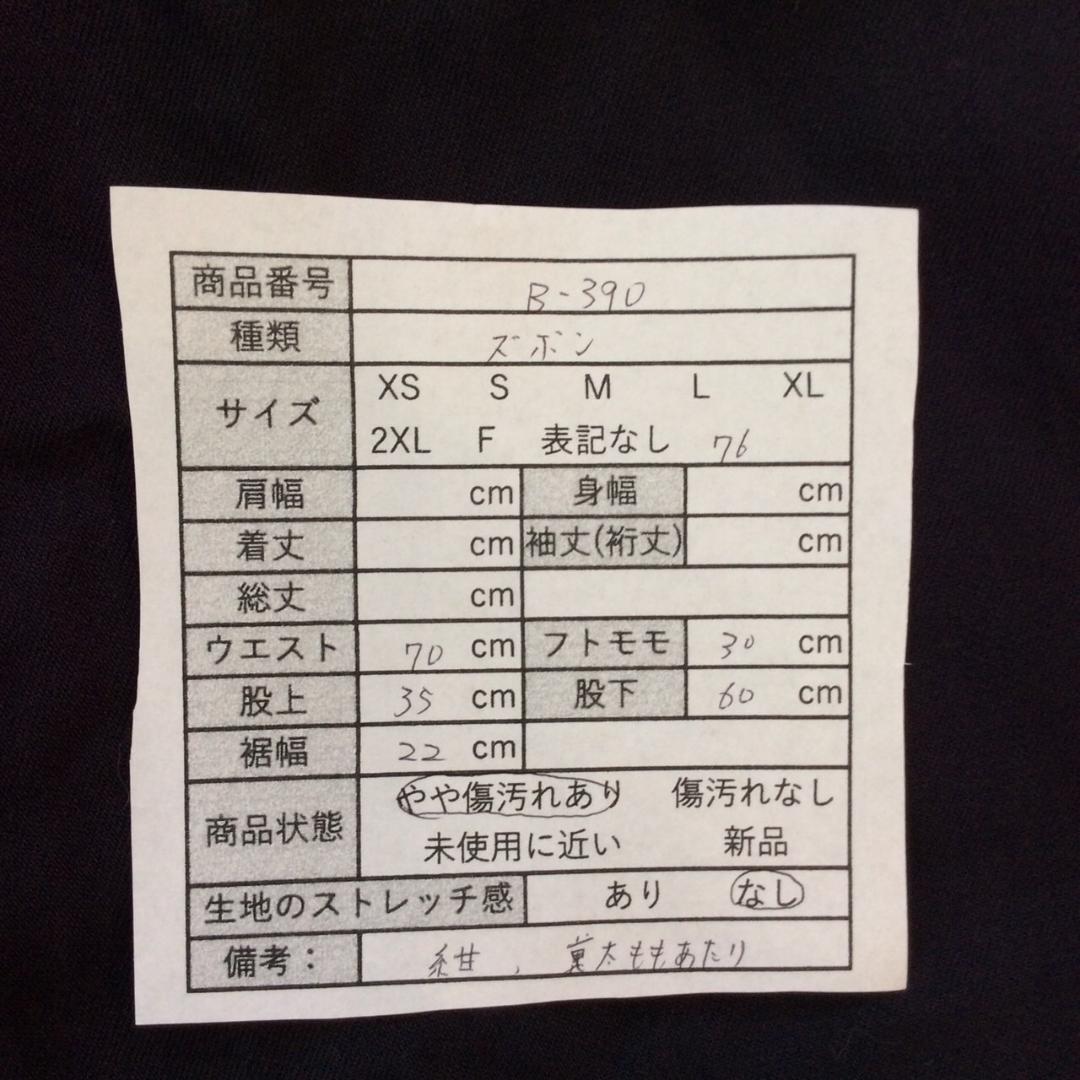 商品番号 B-390
種類 ズボン
サイズ XS S M L XL
2XL F 表記なし 76
肩幅 cm 身幅 cm
着丈 cm 袖丈(裄丈) cm
総丈 cm
ウエスト 70 cm フトモモ 30 cm
股上 35 cm 股下 60 cm
裾幅 22 cm
商品状態 やや傷汚れあり 傷汚れなし
未使用に近い 新品
生地のストレッチ感 あり なし
備考： 紺、 太ももあたり